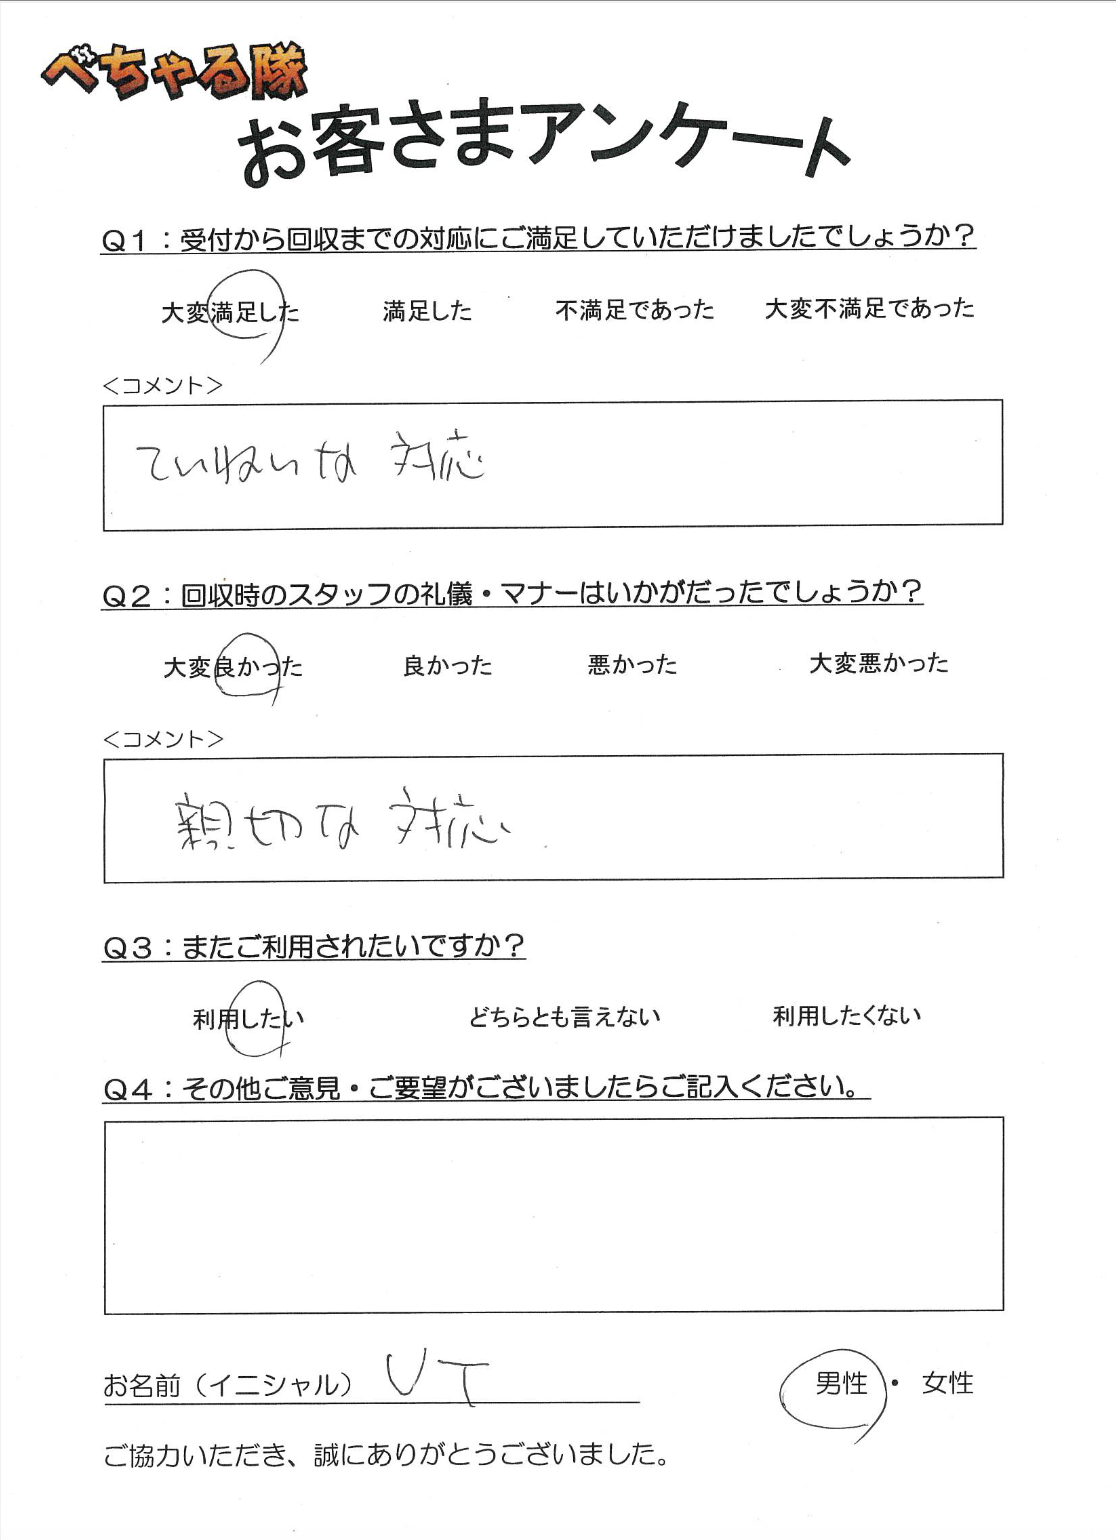 べちゃる隊
お客さまアンケート
Q1：受付から回収までの対応にご満足していただけましたでしょうか？
大変満足した 満足した 不満足であった 大変不満足であった
＜コメント＞
ていねいな 対応
Q2：回収時のスタッフの礼儀・マナーはいかがだったでしょうか？
大変良かった 良かった 悪かった 大変悪かった
＜コメント＞
親切な 対応
Q3：またご利用されたいですか？
利用したい どちらとも言えない 利用したくない
Q4：その他ご意見・ご要望がございましたらご記入ください。
お名前（イニシャル） UT 男性・女性
ご協力いただき、誠にありがとうございました。